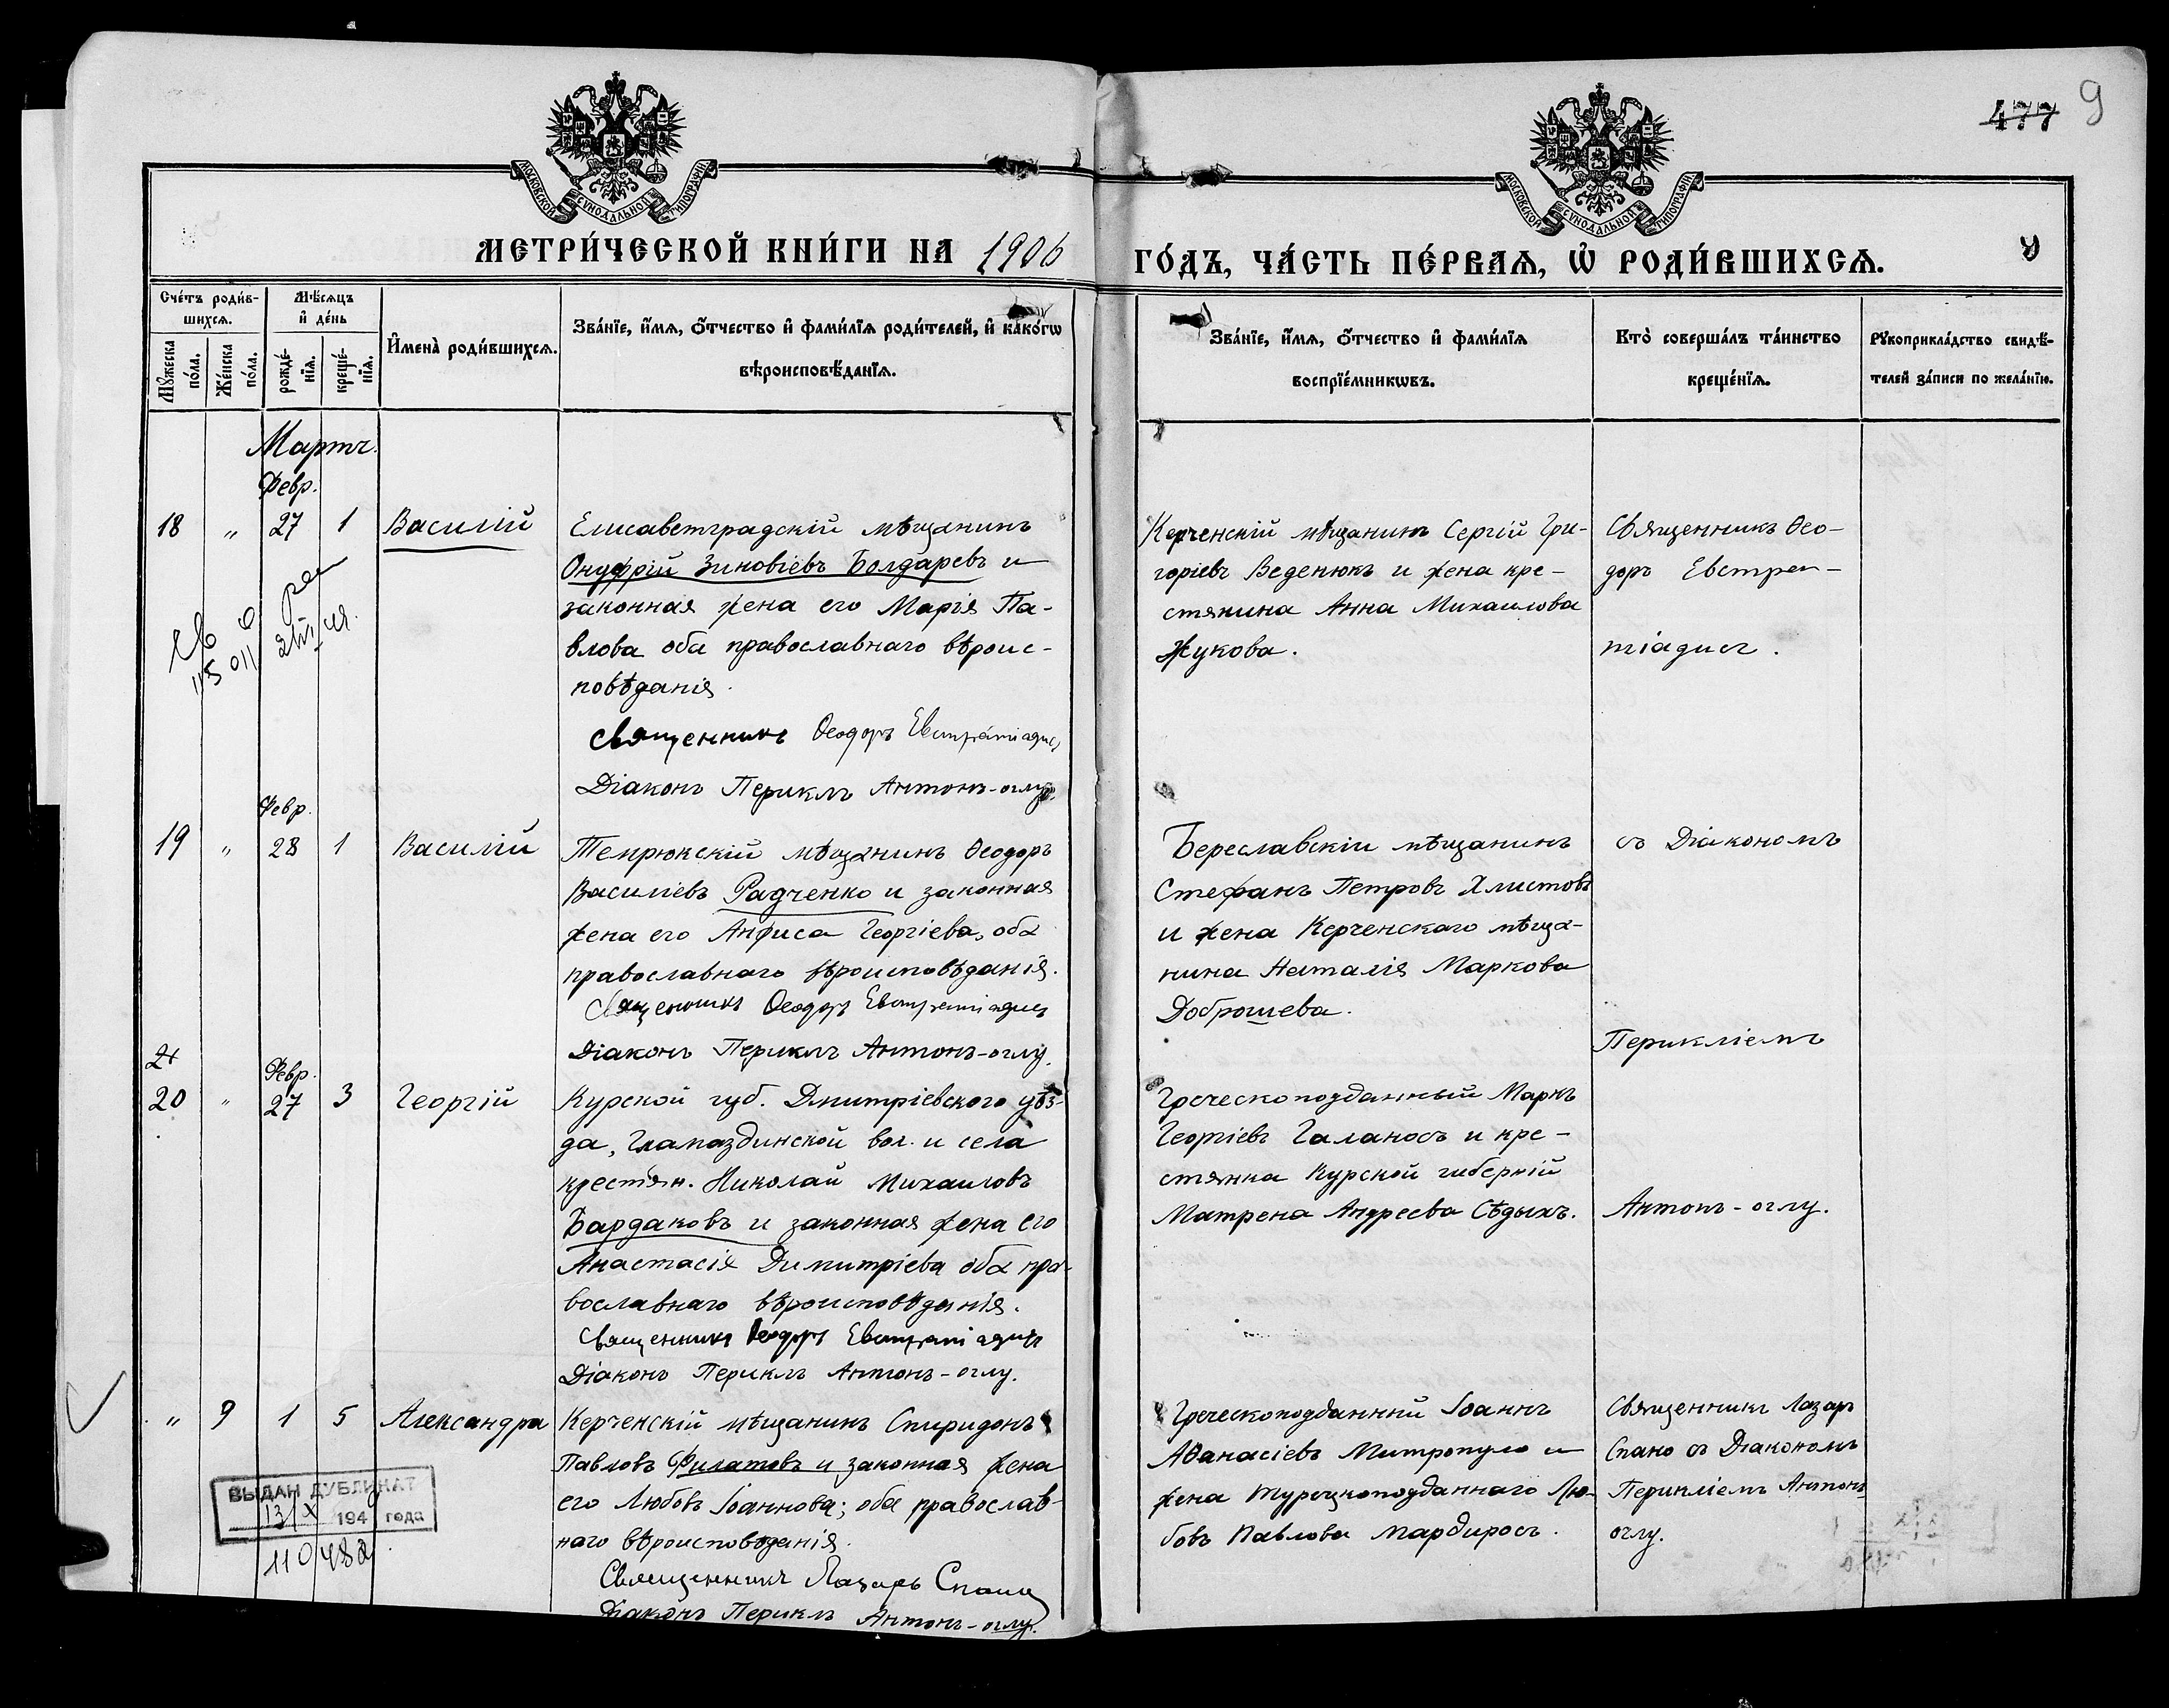 477 9
МОСКОВСКОЙ СѴНОДАЛЬНОЙ ТИПОГРАФІИ
МОСКОВСКОЙ СѴНОДАЛЬНОЙ ТИПОГРАФІИ
МЕТРИ́ЧЕСКОЙ КНИ́ГИ НА 1906 ГО́ДЪ, ЧА́СТЬ ПЕ́РВАѦ, Ѡ҆ РОДИ́ВШИХСѦ.
Сче́тъ роди́в-
шихсѧ.
Мꙋ́жеска по́ла.
Же́нска по́ла.
Мѣ́сѧцъ
и҆ де́нь
рожде́-
нїѧ.
креще́-
нїѧ.
И҆мена̀ роди́вшихсѧ.
Зва́нїе, и҆́мѧ, ѻ҆́тчество и҆ фами́лїѧ роди́телей, и҆ како́гѡ
вѣроисповѣ́данїѧ.
Зва́нїе, и҆́мѧ, ѻ҆́тчество и҆ фами́лїѧ
воспрїе́мникѡвъ.
Кто̀ соверша́лъ та́инство
креще́нїѧ.
Рꙋкоприкла́дство свидѣ́-
телей за́писи по жела́нїю.
Мартъ.
Февр.
18 " 27 1 Василій
Елисаветградскій мѣщанинъ
Онуфрій Зиновіевъ Болдаревъ и
законная жена его Марія Па-
влова оба православнаго вѣроис-
повѣданія.
Священникъ Ѳеодоръ Евстратіадисъ
Діаконъ Периклъ Антонъ-оглу.
Керченскій мѣщанинъ Сергій Гри-
горіевъ Веденюкъ и жена кре-
стянина Анна Михаилова
Жукова.
Священникъ Ѳео-
доръ Евстра-
тіадисъ.
Февр.
19 " 28 1 Василій
Темрюкскій мѣщанинъ Ѳеодоръ
Василіевъ Радченко и законная
жена его Анфиса Георгіева, оба
православнаго вѣроисповѣданія.
Священникъ Ѳеодоръ Евстратіадисъ
Діаконъ Периклъ Антонъ-оглу.
Береславскіи мѣщанинъ
Стефанъ Петровъ Хлистовъ
и жена Керченскаго мѣща-
нина Наталія Маркова
Доброшева.
съ Діакономъ
Перикліемъ
Февр.
20 " 27 3 Георгій
Курской губ. Дмитріевского уѣз-
да, Гламаздинской вол. и села
крестьян. Николай Михаиловъ
Бардаковъ и законная жена его
Анастасія Димитріева оба пра-
вославнаго вѣроисповѣданія.
Священникъ Ѳеодоръ Евстратіадисъ
Діаконъ Периклъ Антонъ-оглу.
Греческоподданный Маркъ
Георгіевъ Галаносъ и кре-
стянка Курской губерніи
Матрена Андреева Сѣдыхъ.
Антонъ-оглу.
" 9 1 5 Александра
Керченскій мѣщанинъ Спиридонъ
Павловъ Филатовъ и законная жена
его Любовь Іоаннова; оба православ-
наго вѣроисповѣданія.
Священникъ Лазарь Спано
Діаконъ Периклъ Антонъ-оглу.
Греческоподданный Іоаннъ
Аѳанасіевъ Митропуло и
жена турецкоподданнаго Лю-
бовь Павлова Мардиросъ.
Священникъ Лазарь
Спано съ Діакономъ
Перикліемъ Антонъ-
оглу.
ВЫДАН ДУБЛИКАТ
13/X 1949 года